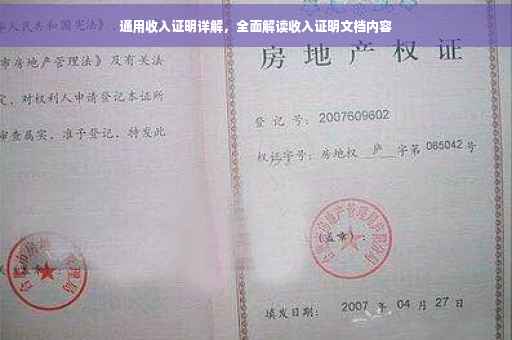 通用收入证明详解，全面解读收入证明文档内容
人民共和国宪法》、
市房地产管理法》及有关法
定，对权利人申请登记本证所
审查属实，准予登记，特发此
房地产权证
登记号：2007609602
权证字号：房地权 庐 字第 085042 号
(盖章)：
填发日期：2007 年 04 月 27 日